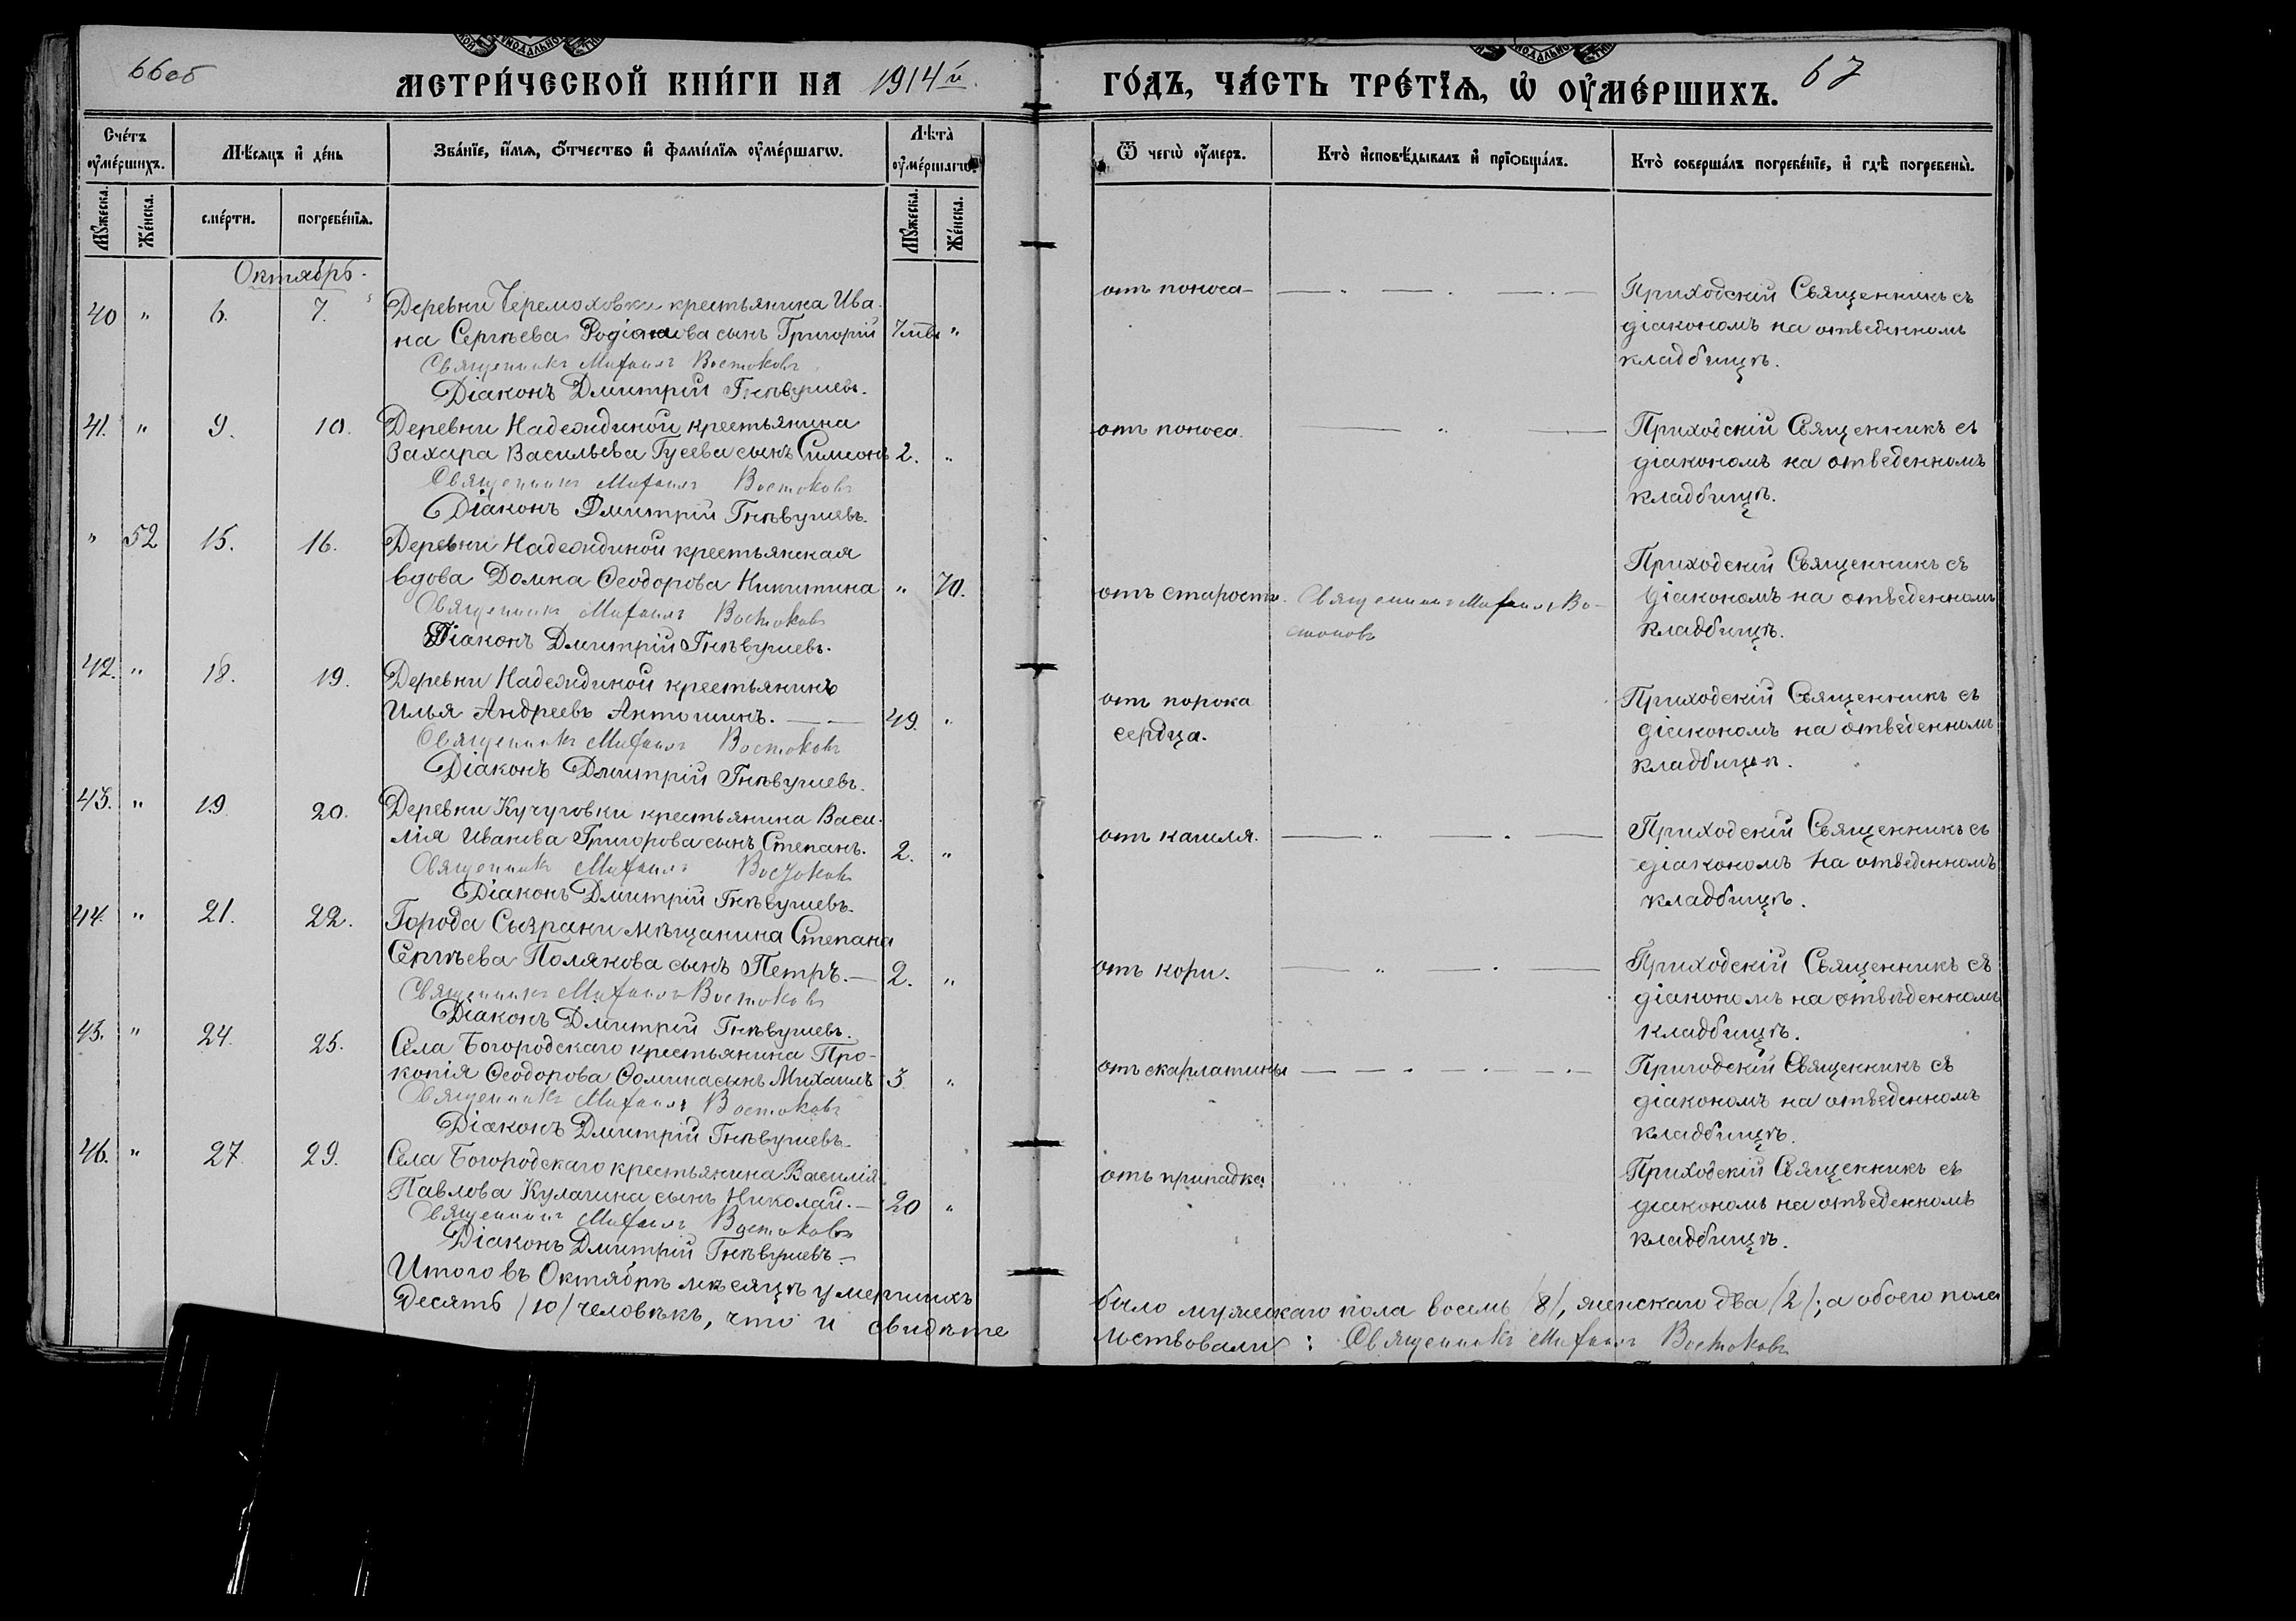 66об
МЕТРИ́ЧЕСКОЙ КНИ́ГИ НА 1914й.
ГО́ДЪ, ЧА́СТЬ ТРЕ́ТІѦ, Ѡ ОУМЕ́РШИХЪ.
67
Сче́тъ оуме́ршихъ.
Мѣ́сяцъ и де́нь
Зва́нїе, и́мѧ, о́тчество и фами́лїѧ оуме́ршагѡ.
Лѣта̀ оуме́ршагѡ.
Ѿ чегѡ̀ оу́меръ.
Кто̀ исповѣ́дывалъ и прїобща́лъ.
Кто̀ соверша́лъ погребе́нїе, и гдѣ̀ погребены̀.
Му́жеска.
Же́нска.
сме́рти.
погребе́нїѧ.
Му́жеска.
Же́нска.
Октябрь.
40 " 6. 7. Деревни Черемоховки крестьянина Ива-
на Сергѣева Родіонова сынъ Григорій " 
Священникъ Михаилъ Востоковъ
Діаконъ Дмитрій Гнѣвушевъ.
отъ поноса
Приходскій Священникъ съ
діакономъ на отведенномъ
кладбищѣ.
41. " 9. 10. Деревни Надеждиной крестьянина
Захара Васильева Гусева сынъ Симеонъ 2. "
Священникъ Михаилъ Востоковъ
Діаконъ Дмитрій Гнѣвушевъ.
отъ поноса.
Приходскій Священникъ съ
діакономъ на отведенномъ
кладбищѣ.
" 52 15. 16. Деревни Надеждиной крестьянская
вдова Домна Ѳеодорова Никитина " 70.
Священникъ Михаилъ Востоковъ
Діаконъ Дмитрій Гнѣвушевъ.
отъ старости. Священникъ Михаилъ Во-
стоковъ
Приходскій Священникъ съ
діакономъ на отведенномъ
кладбищѣ.
42. " 18. 19. Деревни Надеждиной крестьянинъ
Илья Андреевъ Антошинъ. 49. "
Священникъ Михаилъ Востоковъ
Діаконъ Дмитрій Гнѣвушевъ.
отъ порока
сердца.
Приходскій Священникъ съ
діакономъ на отведенномъ
кладбищѣ.
43. " 19. 20. Деревни Кучуговки крестьянина Васи-
лія Иванова Григорова сынъ Степанъ. 2. "
Священникъ Михаилъ Востоковъ
Діаконъ Дмитрій Гнѣвушевъ.
отъ кашля.
Приходскій Священникъ съ
діакономъ на отведенномъ
кладбищѣ.
44. " 21. 22. Города Сызрани мѣщанина Степана
Сергѣева Полякова сынъ Петръ. 2. "
Священникъ Михаилъ Востоковъ
Діаконъ Дмитрій Гнѣвушевъ.
отъ кори.
Приходскій Священникъ съ
діакономъ на отведенномъ
кладбищѣ.
45. " 24. 25. Села Богородскаго крестьянина Про-
копія Ѳеодорова Ѳомина сынъ Михаилъ 3. "
Священникъ Михаилъ Востоковъ
Діаконъ Дмитрій Гнѣвушевъ.
отъ скарлатины
Приходскій Священникъ съ
діакономъ на отведенномъ
кладбищѣ.
46. " 27 29. Села Богородскаго крестьянина Василія
Павлова Кулагина сынъ Николай. 20 "
Священникъ Михаилъ Востоковъ
Діаконъ Дмитрій Гнѣвушевъ.
отъ припадка
Приходскій Священникъ съ
діакономъ на отведенномъ
кладбищѣ.
Итого въ Октябрѣ мѣсяцѣ умершихъ было мужескаго пола восемь /8/, женскаго два /2/; а обоего пола
десять /10/ человѣкъ, что и свидѣте
льствовали: Священникъ Михаилъ Востоковъ